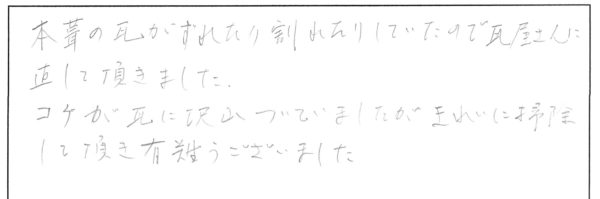 本葺の瓦がずれたり割れたりしていたので瓦屋さんに
直して頂きました.
コケが瓦に沢山ついていましたがきれいに掃除
して頂き有難うございました